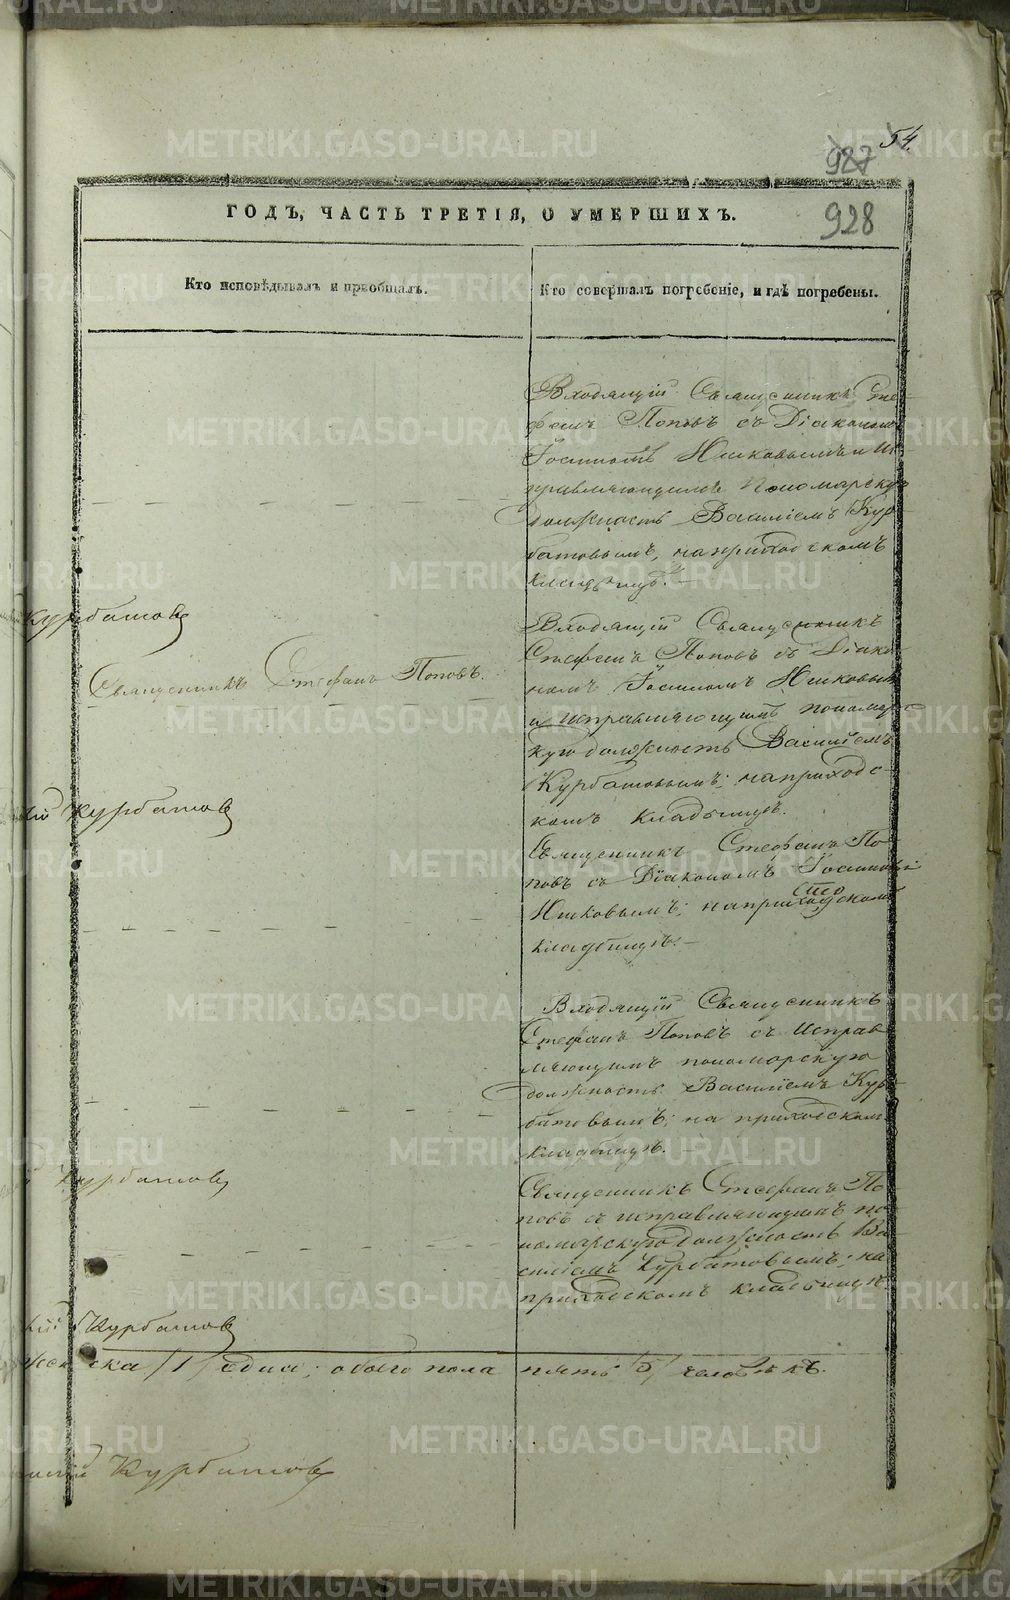 54
927
928
ГОДЪ, ЧАСТЬ ТРЕТІЯ, О УМЕРШИХЪ.
Кто исповѣдывалъ и пріобщалъ.
Кто совершалъ погребеніе, и гдѣ погребены.
Входящій Священникъ Сте-
фанъ Поповъ съ Діакономъ
Іосиѳомъ Ис-
правляющимъ Пономарскую
должность Василіемъ Кур-
батовымъ, на приходскомъ
кладбищѣ. —
Курбатовъ
Священникъ Стефанъ Поповъ.
Входящій Священникъ
Стефанъ Поповъ съ Діако-
номъ
и исправляющимъ пономарс-
кую должность Василіемъ
Курбатовымъ; на приходс-
комъ кладбищѣ.
Курбатовъ
Священникъ Стефанъ По-
повъ съ Діакономъ
на приходскомъ
кладбищѣ. —
Входящій Священникъ
Стефанъ Поповъ съ Исправ-
ляющимъ пономарскую
должность Василіемъ Кур-
батовымъ; на приходскомъ
кладбищѣ. —
Курбатовъ
Священникъ Стефанъ По-
повъ съ исправляющимъ по-
номарскую должность Ва-
силіемъ Курбатовымъ; на
приходскомъ кладбищѣ.
Курбатовъ
ска /1/ одна; обоего пола пять /5/ человѣкъ.
Курбатовъ
METRIKI.GASO-URAL.RU